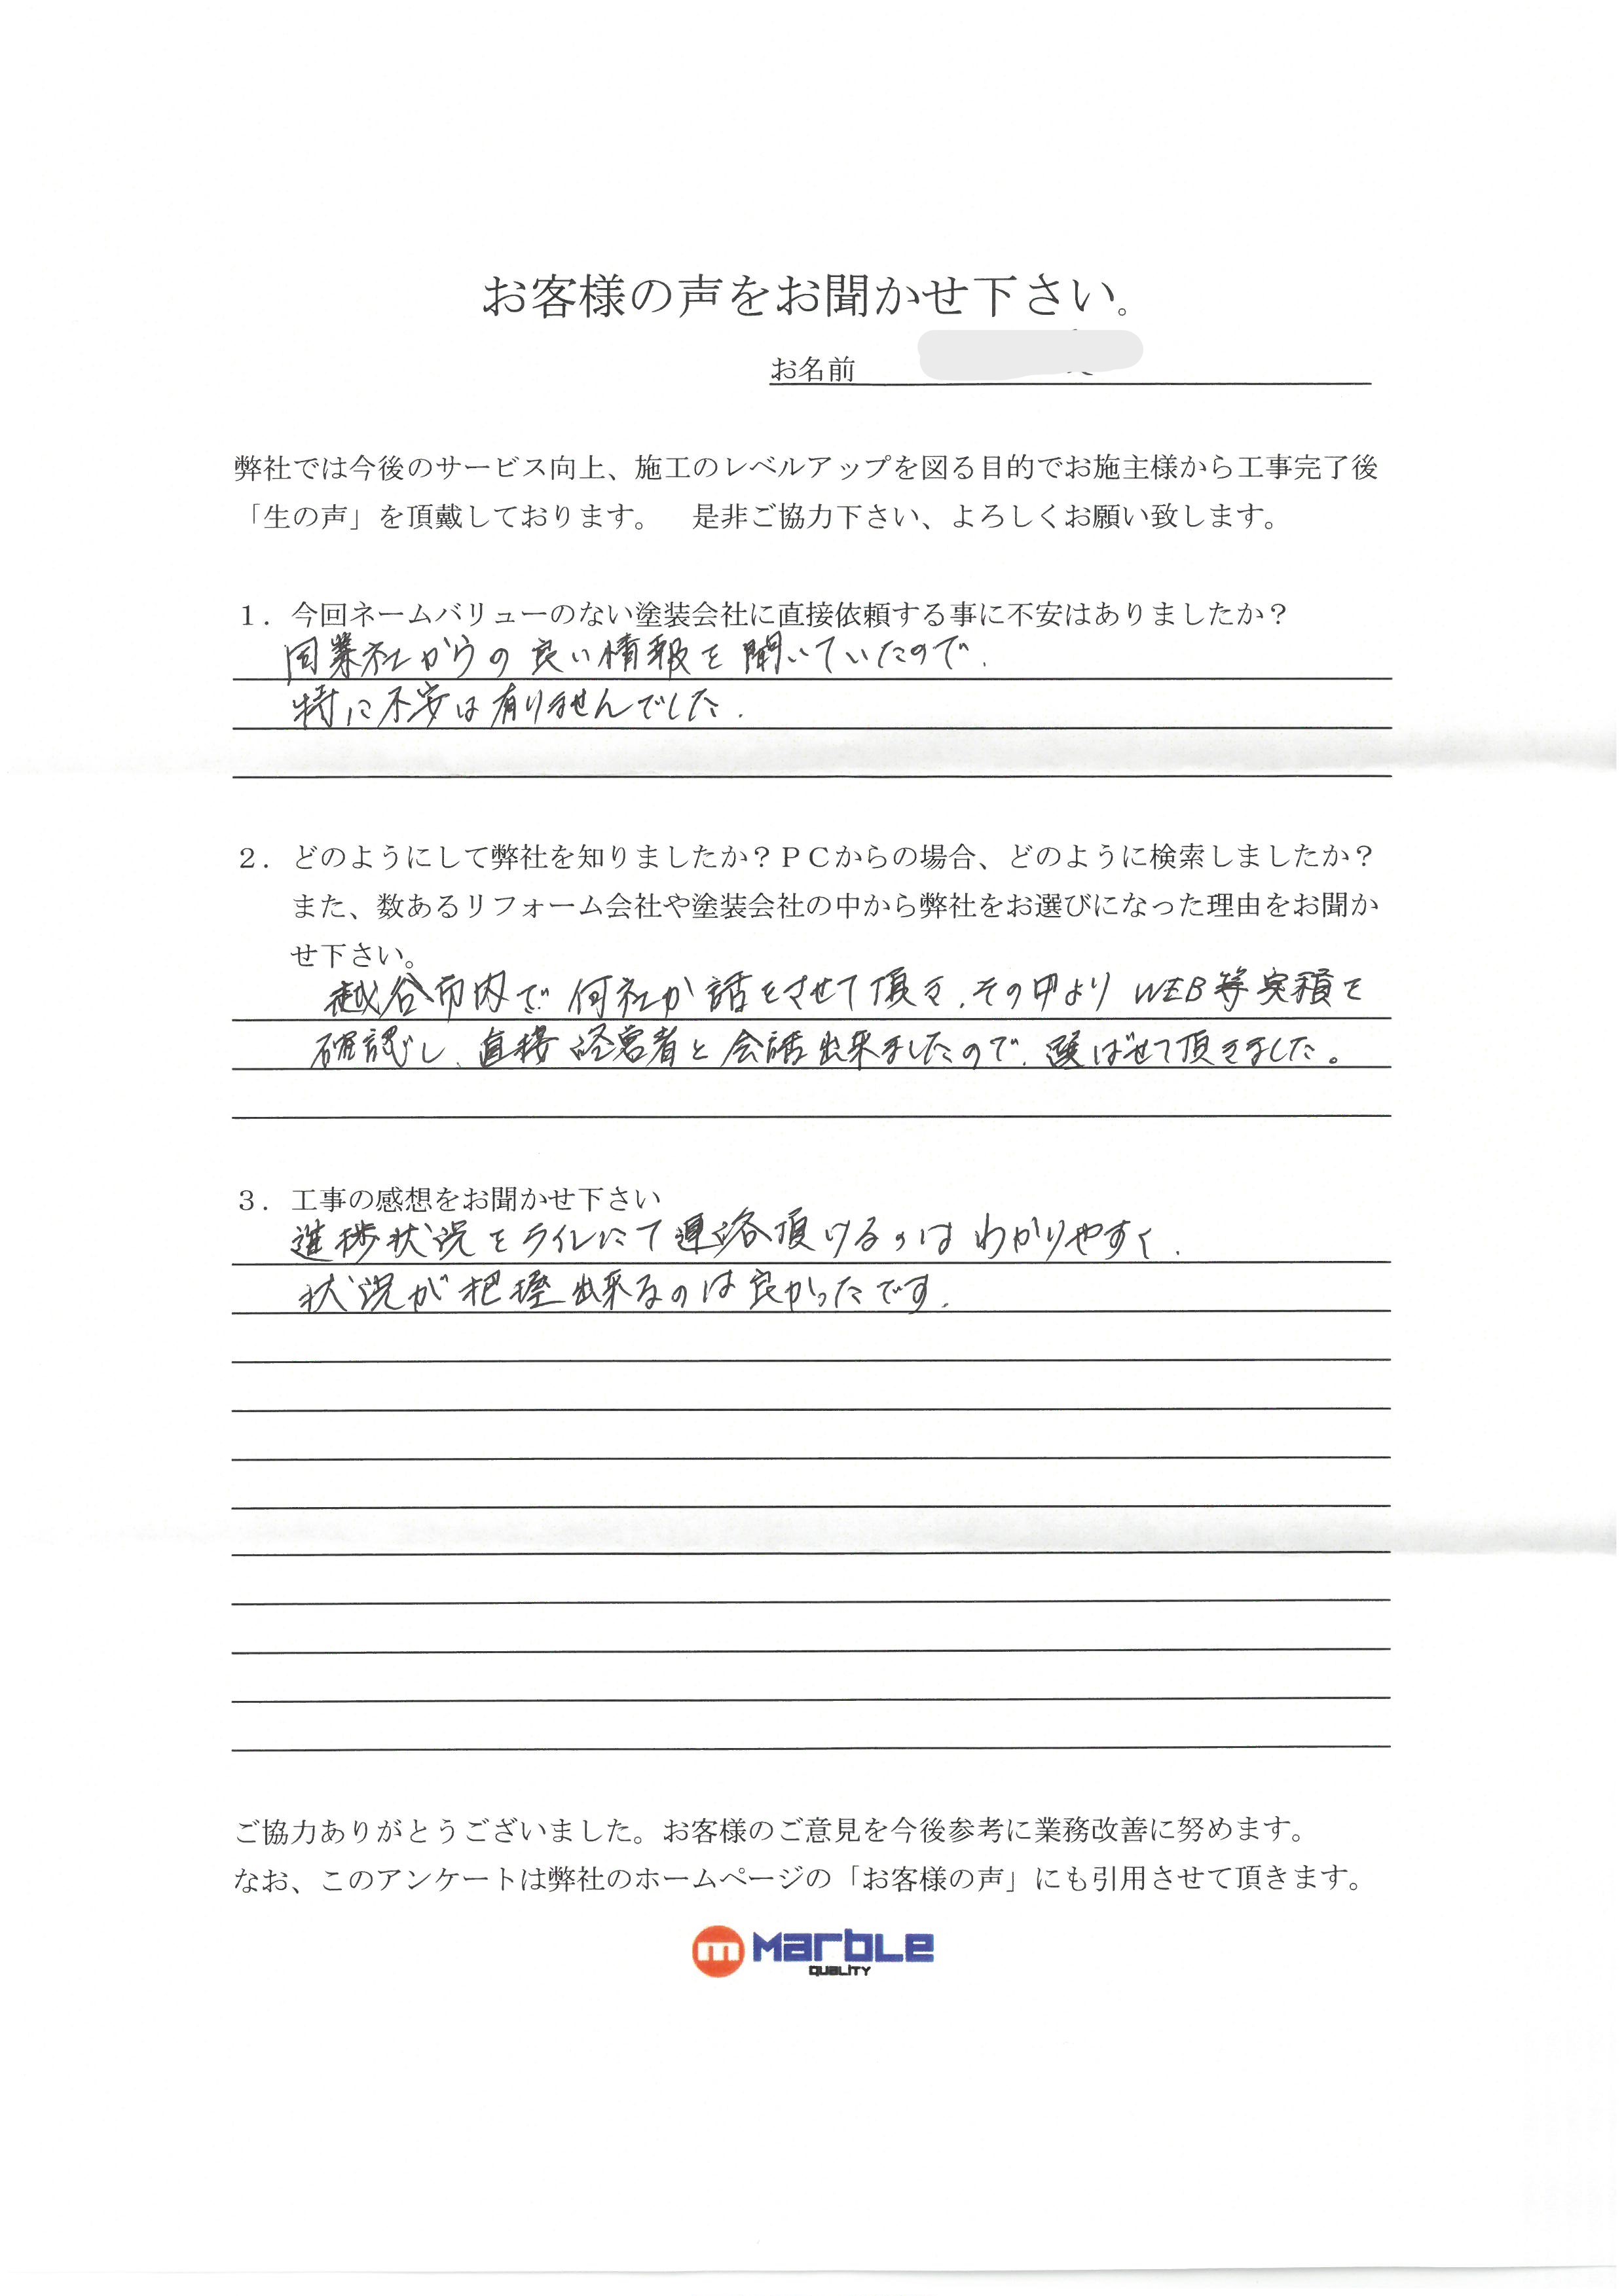 お客様の声をお聞かせ下さい。
お名前
弊社では今後のサービス向上、施工のレベルアップを図る目的でお施主様から工事完了後
「生の声」を頂戴しております。　是非ご協力下さい、よろしくお願い致します。
１．今回ネームバリューのない塗装会社に直接依頼する事に不安はありましたか？
同業社からの良い情報を聞いていたので、
特に不安は有りませんでした．
２．どのようにして弊社を知りましたか？ＰＣからの場合、どのように検索しましたか？
また、数あるリフォーム会社や塗装会社の中から弊社をお選びになった理由をお聞か
せ下さい。
越谷市内で何社か話をさせて頂き、その中よりWEB等実積を
確認し、直接経営者と会話出来ましたので、選ばせて頂きました。
３．工事の感想をお聞かせ下さい
進捗状況をラインにて連絡頂けるのはわかりやすく、
状況が把握出来るのは良かったです．
ご協力ありがとうございました。お客様のご意見を今後参考に業務改善に努めます。
なお、このアンケートは弊社のホームページの「お客様の声」にも引用させて頂きます。
m Marble
QUALITY